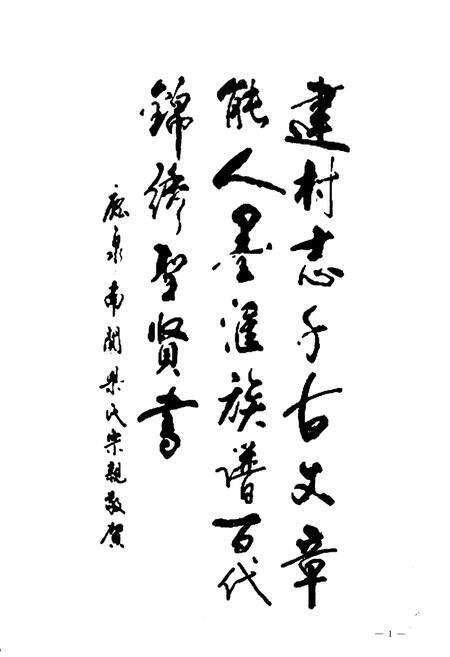 建村志千古文章
能人墨滙族谱百代
錦繡聖賢書
鹿泉南関梁氏宗親敬賀
— 1 —